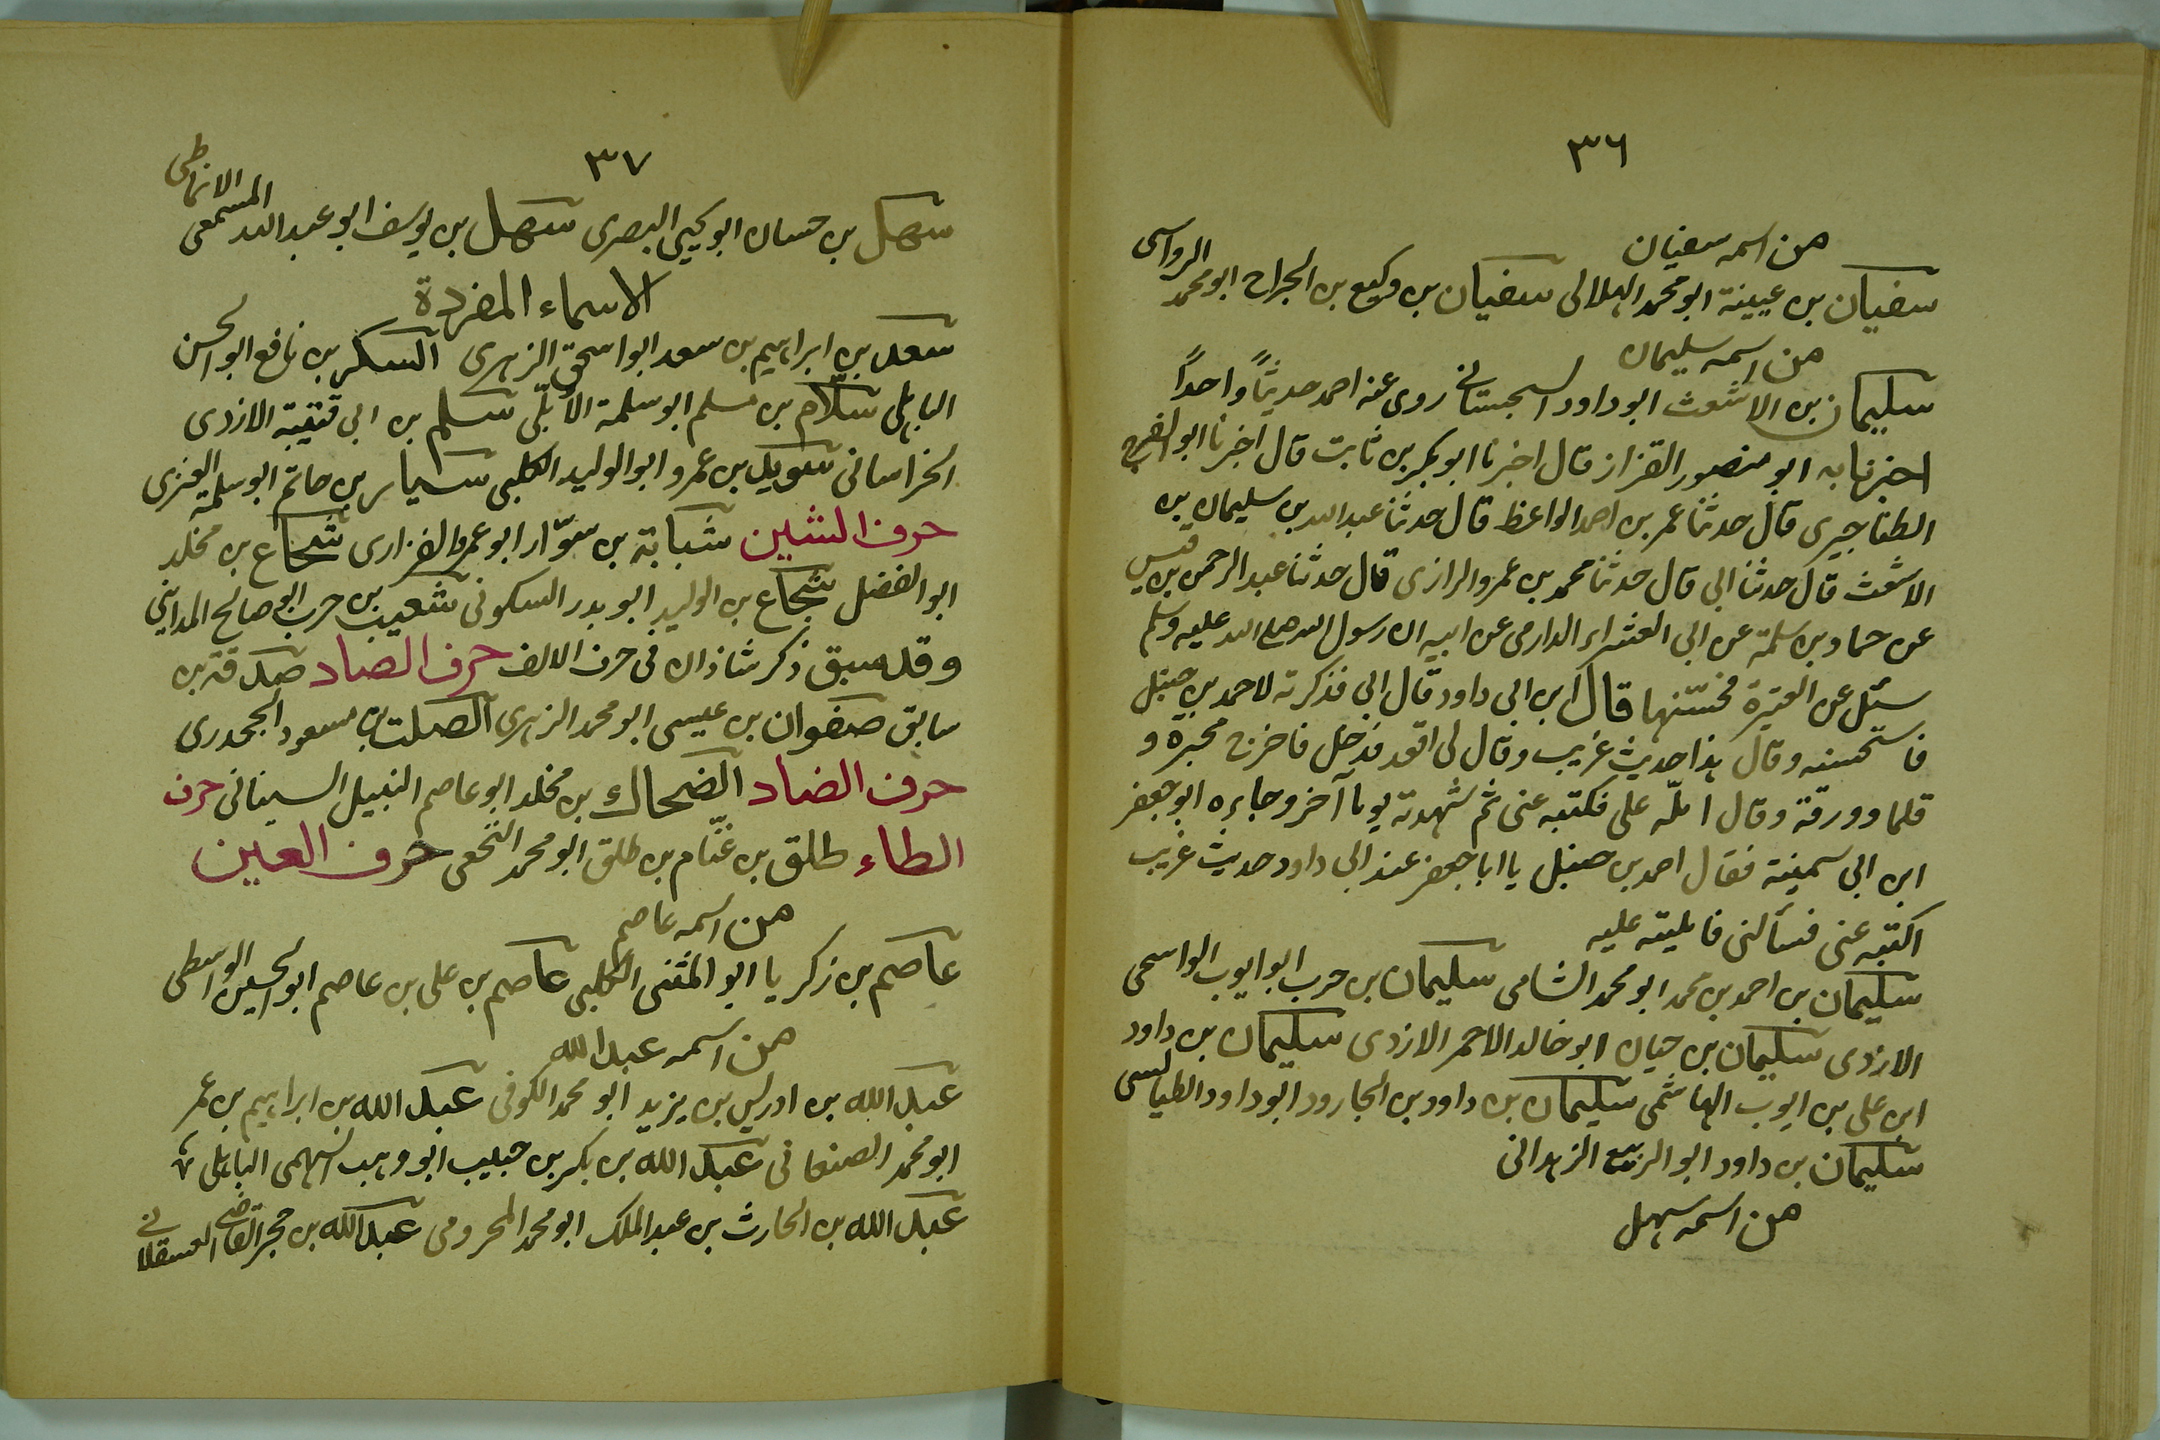 ٣٦
من اسمه سفيان
سفيان بن عيينة ابو محمد الهلالى سفيان بن وكيع بن الجراح ابو محمد الرواسى
من اسمه سليمان
سليمان بن الاشعث ابو داود السجستانى روى عنه احمد حديثاً واحداً
اخبرنا به ابو منصور القزاز قال اخبرنا ابو بكر بن ثابت قال اخبرنا ابو الفرج
الطناجيرى قال حدثنا عمر بن احمد الواعظ قال حدثنا عبد الله بن سليمان بن
الاشعث قال حدثنا ابى قال حدثنا محمد بن عمرو الرازى قال حدثنا عبد الرحمن بن قيس
عن حماد بن سلمة عن ابى العشراء الدارمى عن ابيه ان رسول الله صلى الله عليه وسلم
سئل عن العتيرة فحسّنها قال ابن ابى داود قال ابى فذكرته لاحمد بن حنبل
فاستحسنه وقال هذا حديث غريب وقال لى اقعد فدخل فاخرج محبرة و
قلما وورقة وقال املّه على فكتبه عنى ثم شهدته يوما آخر وجاءه ابو جعفر
ابن ابى سمينة فقال احمد بن حنبل يا ابا جعفر عند ابى داود حديث غريب
اكتبه عنى فسألنى فامليته عليه
سليمان بن احمد بن محمد ابو محمد الشامى سليمان بن حرب ابو ايوب الواسحى
الازدى سليمان بن حيان ابو خالد الاحمر الازدى سليمان بن داود
ابن على بن ايوب الهاشمى سليمان بن داود بن الجارود ابو داود الطيالسى
سليمان بن داود ابو الربيع الزهرانى
من اسمه سهل
٣٧
سهل بن حسان ابو يحيى البصرى سهل بن يوسف ابو عبد الله المسمعى الانماطى
الاسماء المفردة
سعد بن ابراهيم بن سعد ابو اسحق الزهرى السكر بن نافع ابو الحسن
الباهلى سلّام بن مسلم ابو سلمة الأبلّى سلم بن ابى قتيبة الازدى
الخراسانى سويد بن عمرو ابو الوليد الكلبى سيار بن حاتم ابو سلمة العنزى
حرف الشين شبابة بن سوّار ابو عمرو الفزارى شجاع بن مخلد
ابو الفضل شجاع بن الوليد ابو بدر السكونى شعيب بن حرب ابو صالح المداينى
وقد سبق ذكر شاذان فى حرف الالف حرف الصاد صدقة بن
سابق صفوان بن عيسى ابو محمد الزهرى الصلت بن مسعود الجحدرى
حرف الضاد الضحاك بن مخلد ابو عاصم النبيل السينانى حرف
الطاء طلق بن غنّام بن طلق ابو محمد النخعى حرف العين
من اسمه عاصم
عاصم بن زكريا ابو المثنى الكلبى عاصم بن على بن عاصم ابو الحسين الواسطى
من اسمه عبد الله
عبد الله بن ادريس بن يزيد ابو محمد الكوفى عبد الله بن ابراهيم بن عمر
ابو محمد الصنعانى عبد الله بن بكر بن حبيب ابو وهب السهمى الباهلى
عبد الله بن الحارث بن عبد الملك ابو محمد المخرومى عبد الله بن حجر القاضى العسقلانى